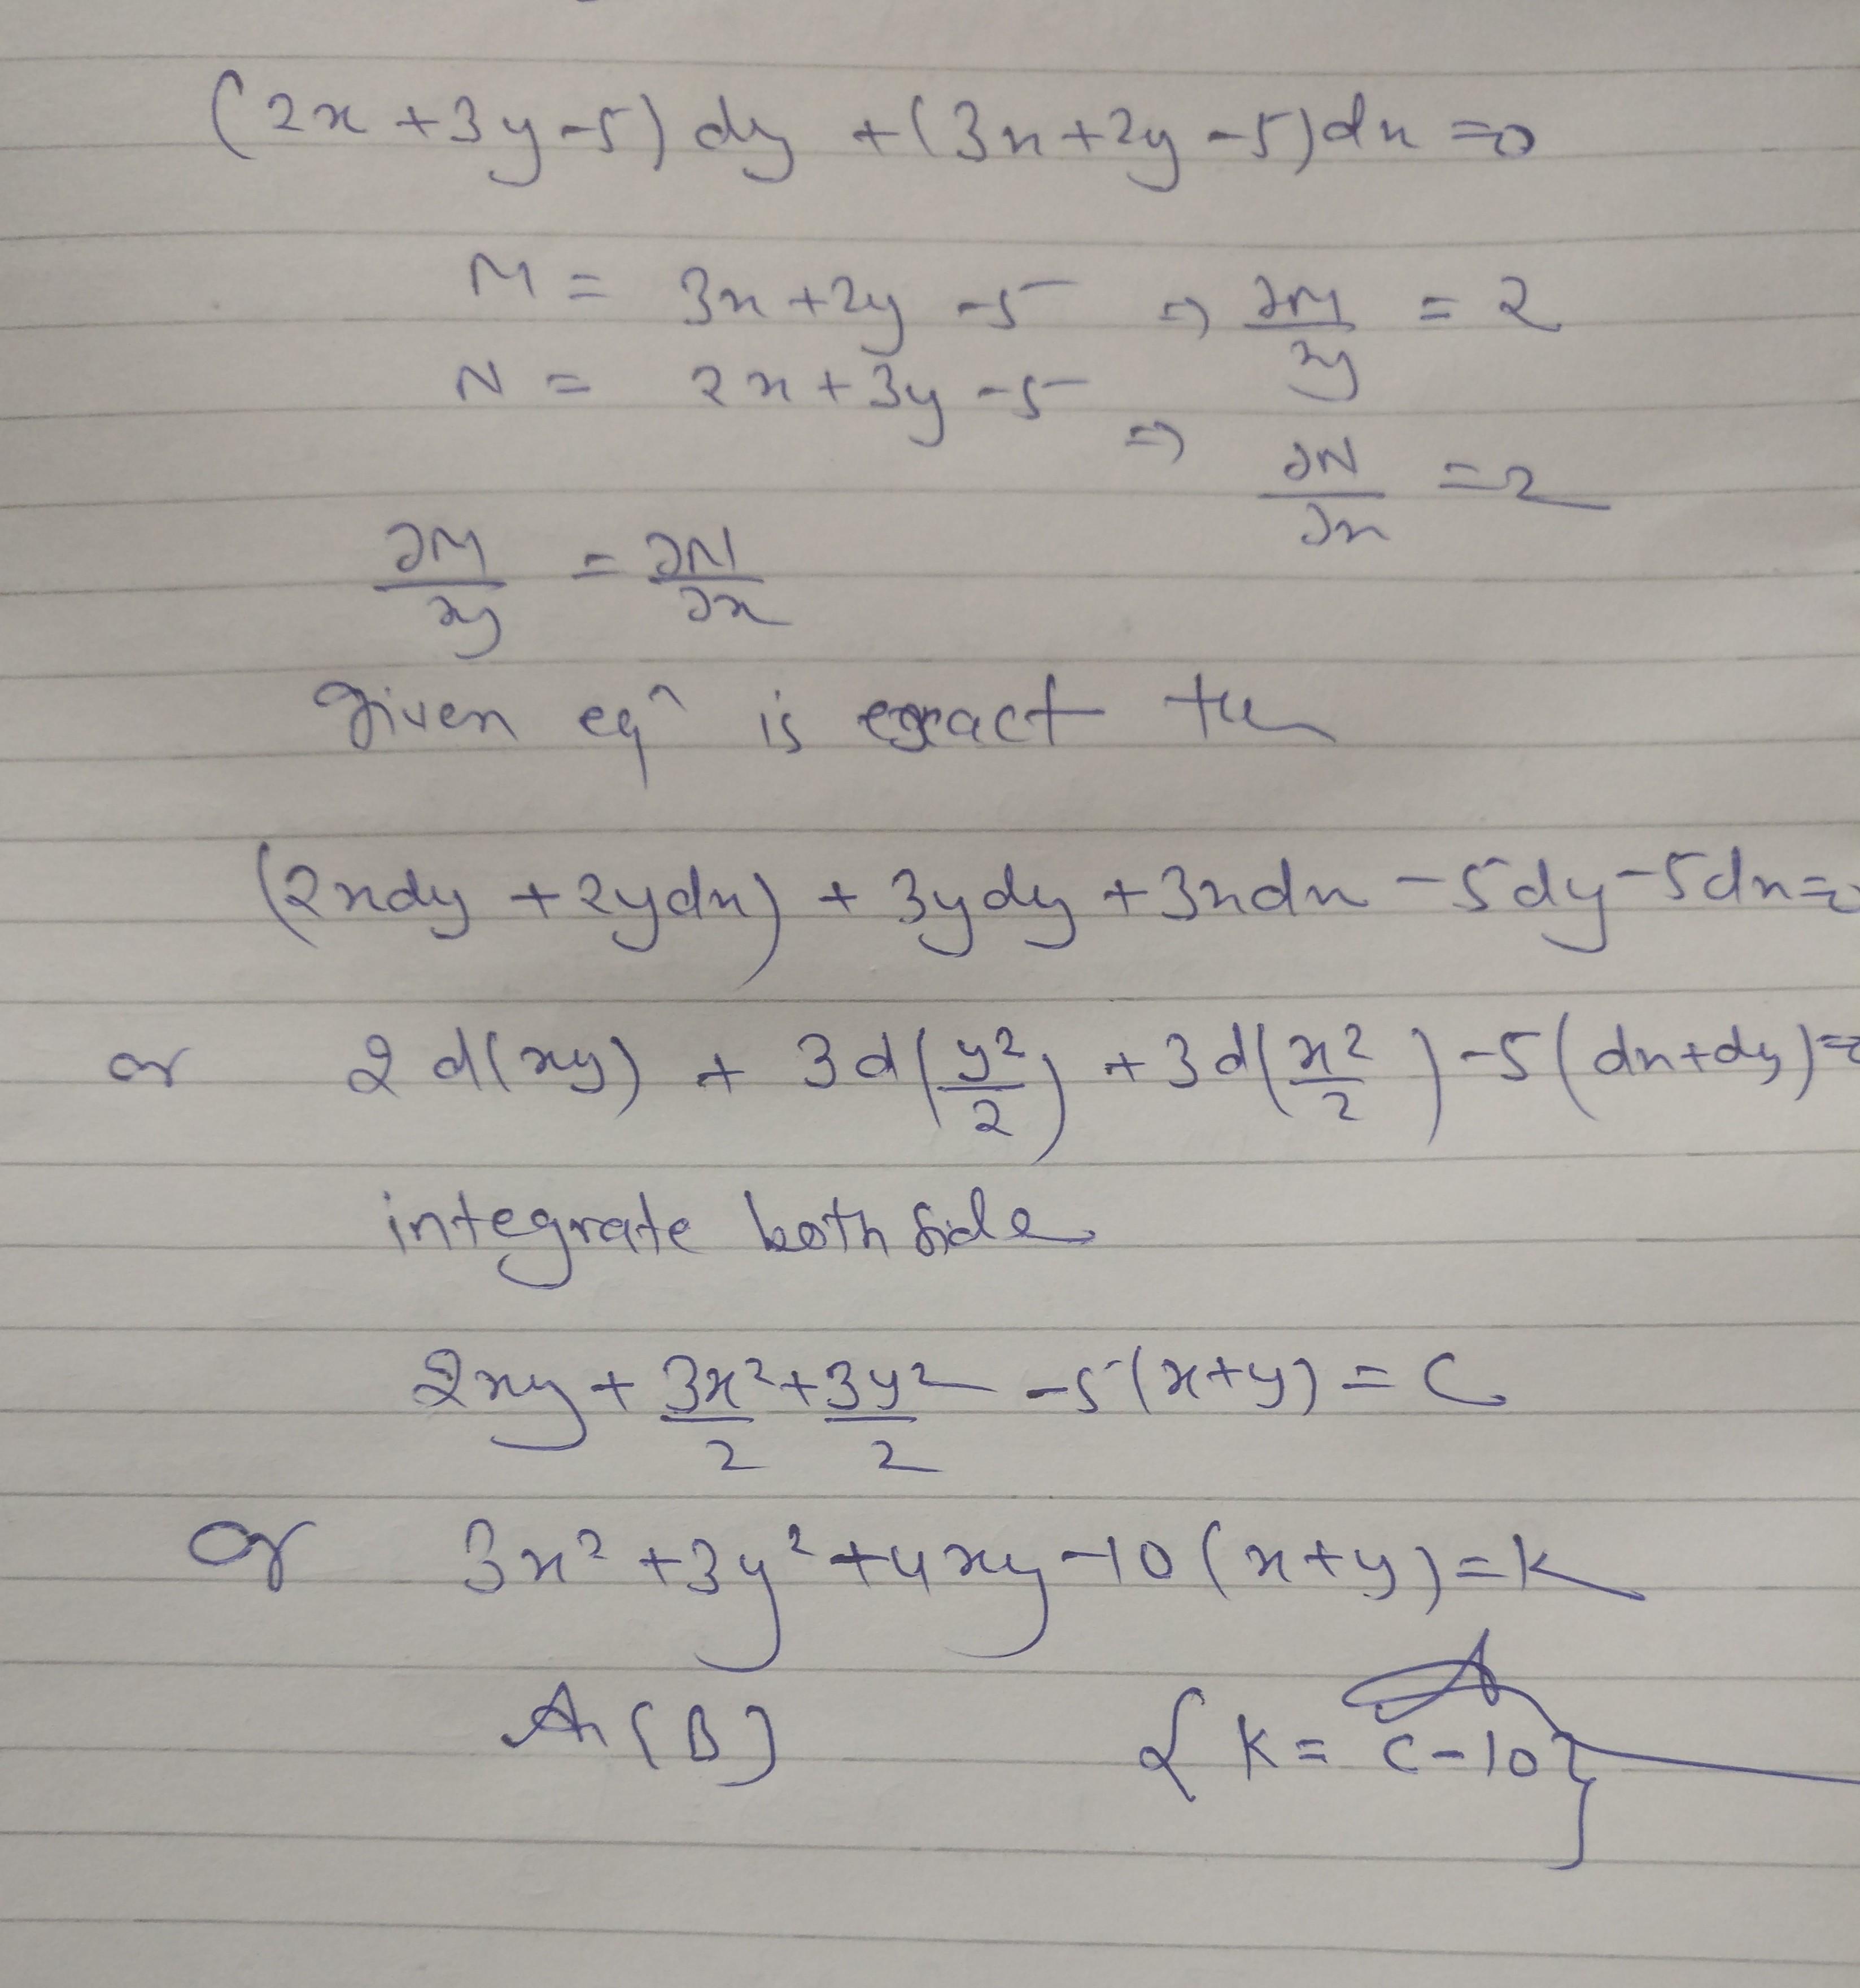 (2x+3y-5) dy + (3x+2y-5) dx =0
M = 3x+2y-5 ⇒ ∂M/∂y = 2
N = 2x+3y-5 ⇒ ∂N/∂x = 2
∂M/∂y = ∂N/∂x
given eqⁿ is exact
(2xdy + 2ydx) + 3ydy + 3xdx - 5dy - 5dx=0
or 2 d(xy) + 3d(y²/2) + 3d(x²/2) - 5(dx+dy)=0
integrate both side
2xy + 3x²/2 + 3y²/2 - 5(x+y) = C
or 3x² + 3y² + 4xy - 10(x+y) = K
(B) {K = C-10}